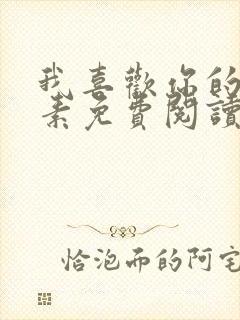 我喜歡你的
素免費閱讀
恰泡而的阿宅